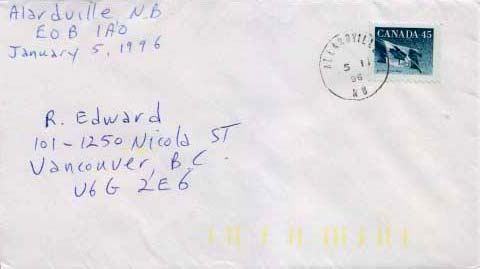 Alardville, N.B
E0B 1A0
January 5, 1996
CANADA 45
ALLARDVILLE
5 I
96
N B
R. Edward
101-1250 Nicola ST
Vancouver, B.C.
V6G 2E6